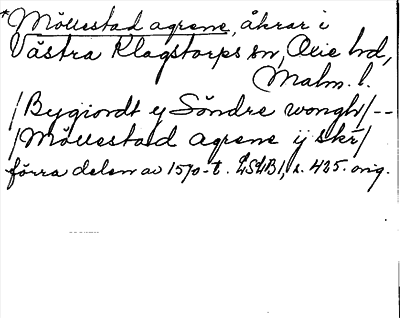 *Möllestad agrene, åkrar i
Västra Klagstorps sn, Oxie hd,
Malm. l.
/Bygiordt ij Söndre wongh/--
/Möllestad agrene ij skr/
förra delen av 1570-t. LSLB1, s. 425. orig.